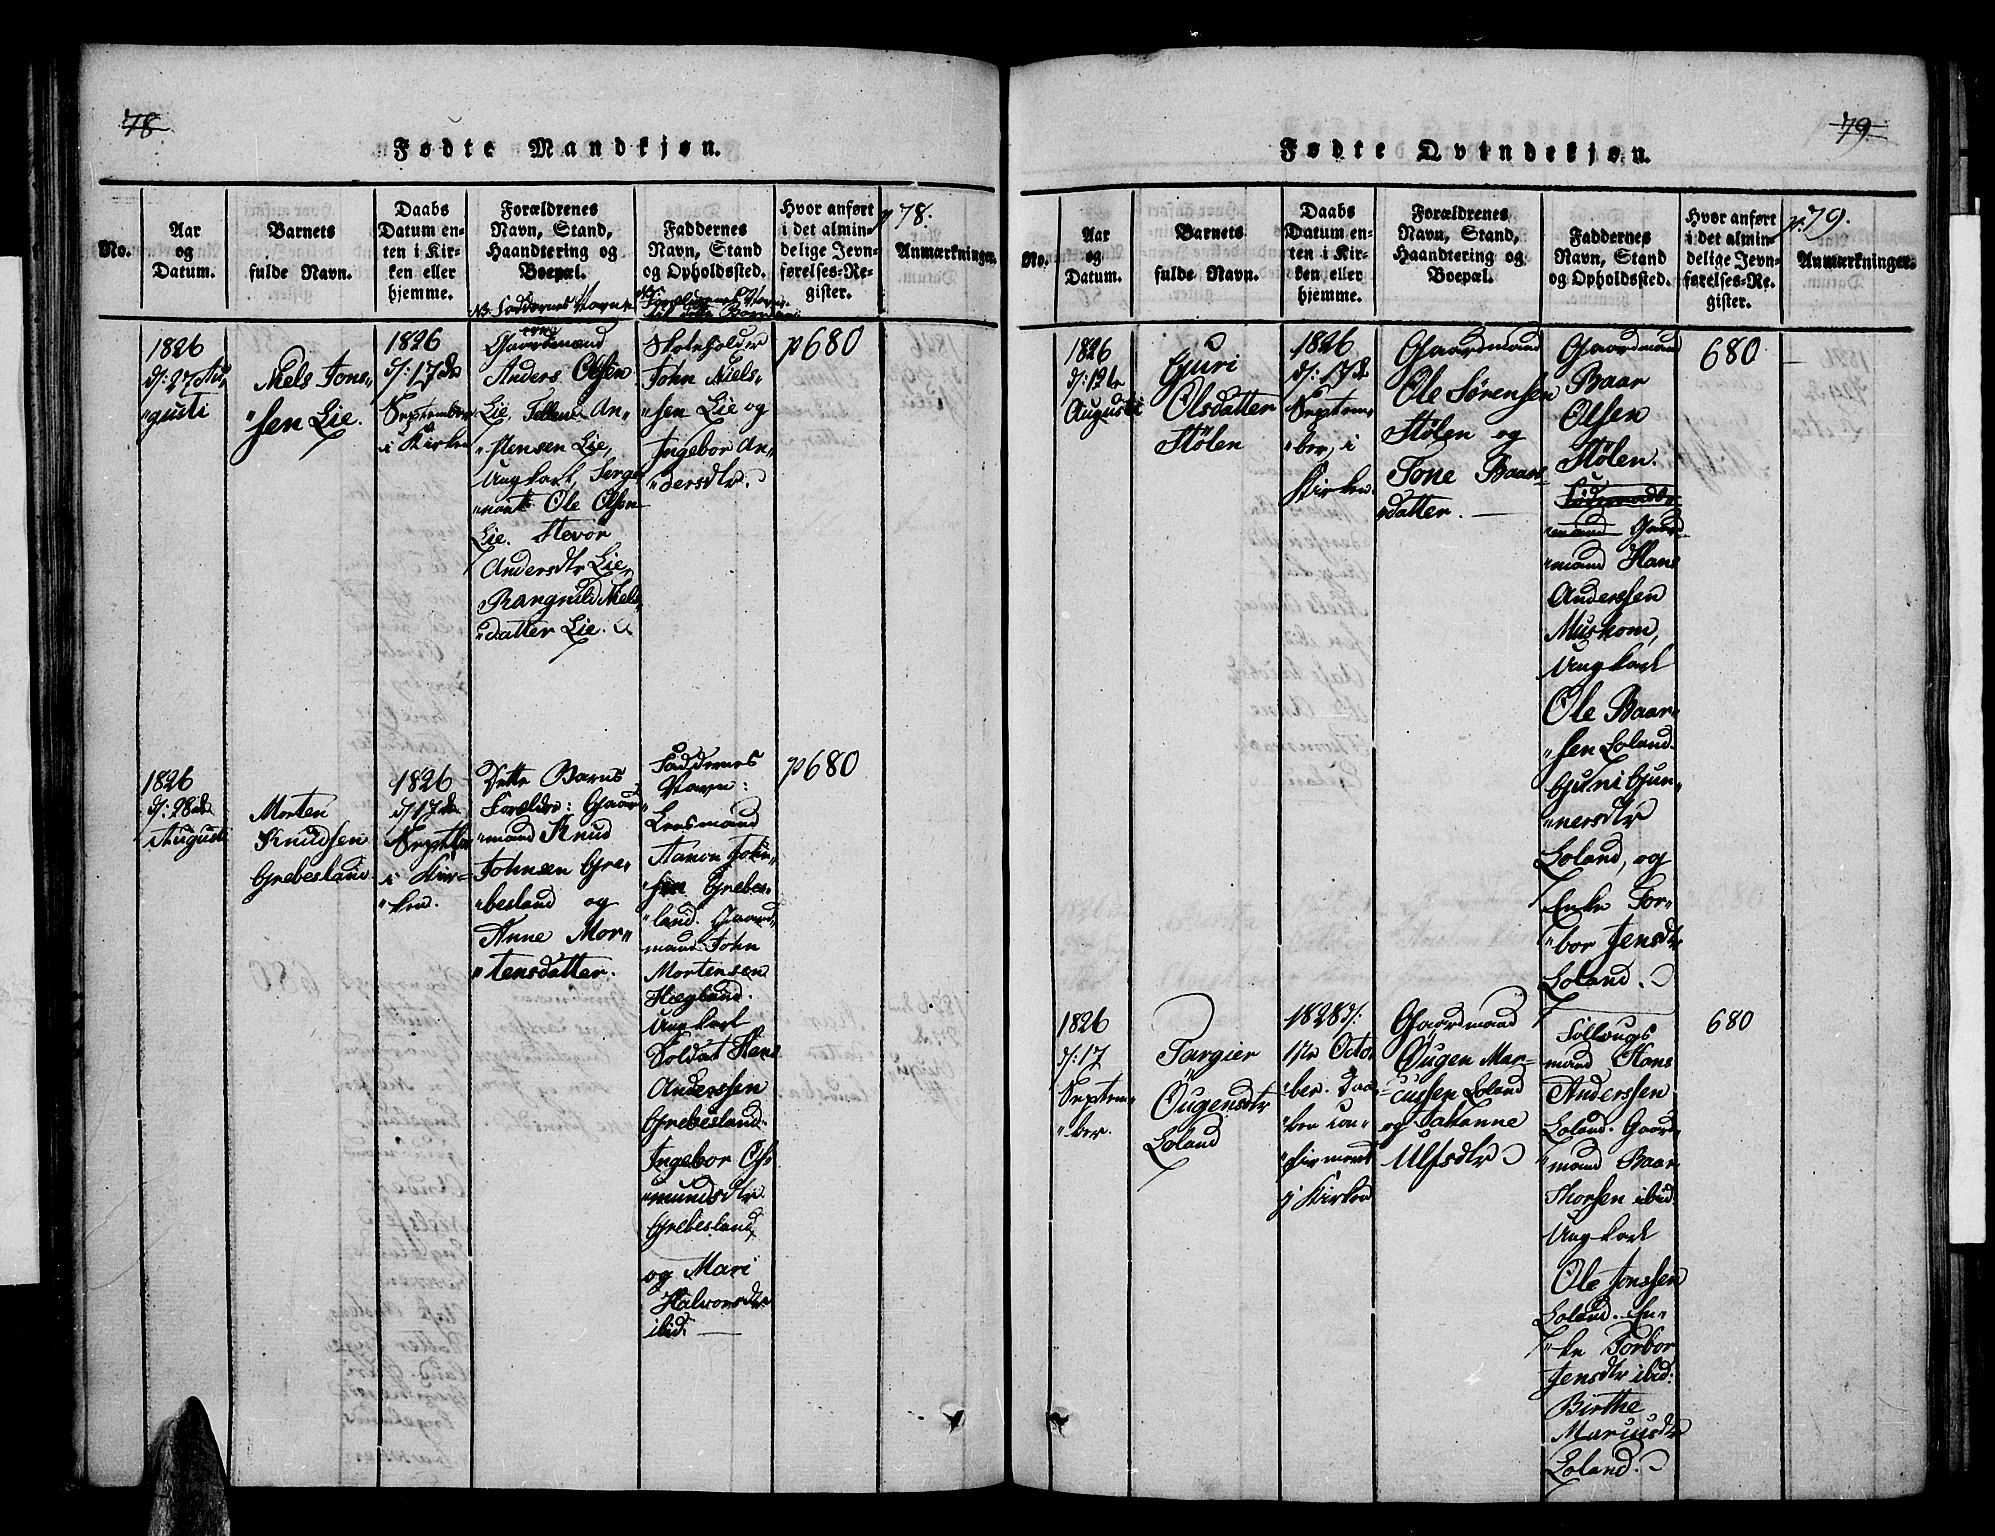 78
Fødte Mandkjøn.
No.
Aar
og
Datum.
Barnets
fulde Navn.
Daabs
Datum en-
ten i Kir-
ken eller
hjemme.
Forældrenes
Navn, Stand,
Haandtering og
Boepæl.
NB Faddernes Navne
Faddernes
Navn, Stand
og Opholdssted.
Forældrenes Navne
til dette Barn
Hvor anført
i det almin-
delige Jevn-
førelses-Re-
gister.
p 78.
Anmærkninger.
1826
d: 27 Au-
gusti
Niels Jons-
sen Lie.
1826
d: 17de
September
i Kirken
Gaardmænd
Anders Olsen
Lie, Tellev An-
stensen Lie,
Ungkarl, Serge-
ant Ole Olsen
Lie. Stevor
Andersdtr Lie,
Rangnild Niels
datter Lie.
Skoleholder
John Niels-
sen Lie og
Ingebor An-
dersdtr.
p 680
1826
d: 28de
Augusti
Morten
Knudsen
Grebesland
1826
d 17de
Septbr
i Kir-
ken.
Dette Barns
Forældre: Gaar-
mand Knud
Johnsen Gre-
besland og
Anne Mor-
tensdatter.
Faddernes
Navn:
Lensmand
Aanon John-
sen Grebes-
land. Gaard-
mand John
Mortensen
Hægland.
Ungkarl
Soldat Hans
Anderssen
Grebesland.
Ingebor Os-
mundsdtr
Grebesland
og Mari
Halvorsdtr
ibid.
p 680
79
Fødte Qvindekjøn.
No.
Aar
og
Datum.
Barnets
fulde Navn.
Daabs
Datum en-
ten i Kir-
ken eller
hjemme.
Forældrenes
Navn, Stand,
Haandtering og
Boepæl.
Faddernes
Navn, Stand
og Opholdssted.
Hvor anført
i det almin-
delige Jevn-
førelses-Re-
gister.
p. 79.
Anmærkninger.
1826
d: 12te
Augusti
Gjuri
Olsdatter
Stølen
1826
d: 17de
Septem-
ber, i
Kirken.
Gaardmand
Ole Sørensen
Stølen og
Tone Baars-
datter.
Gaardmand
Baar
Olsen
Stølen.
mand Gaard
mand Hans
Anderssen
Muskom,
Ungkarl
Ole Baar-
sen Loland.
Gjuni Gjun-
nersdtr
Loland, og
Enke Tor-
bor Jensdtr
Loland.
680
1826
d: 17
Septem-
ber.
Targier
Øugensdtr
Loland
1828 d:
12te Octo-
ber. Daa-
ben con-
firmert
i Kirken
Gaardmand
Øugen Mar-
cussen Loland
og Johanne
Ulfsdtr
Follougs
mand Hans
Anderssen
Loland. Gaard-
mand Baar
Thorsen ibid.
Ungkarl
Ole Jonssen
Loland. En-
ke Torbor
Jensdtr ibid:
Birthe
Marcusdtr
Loland.
680